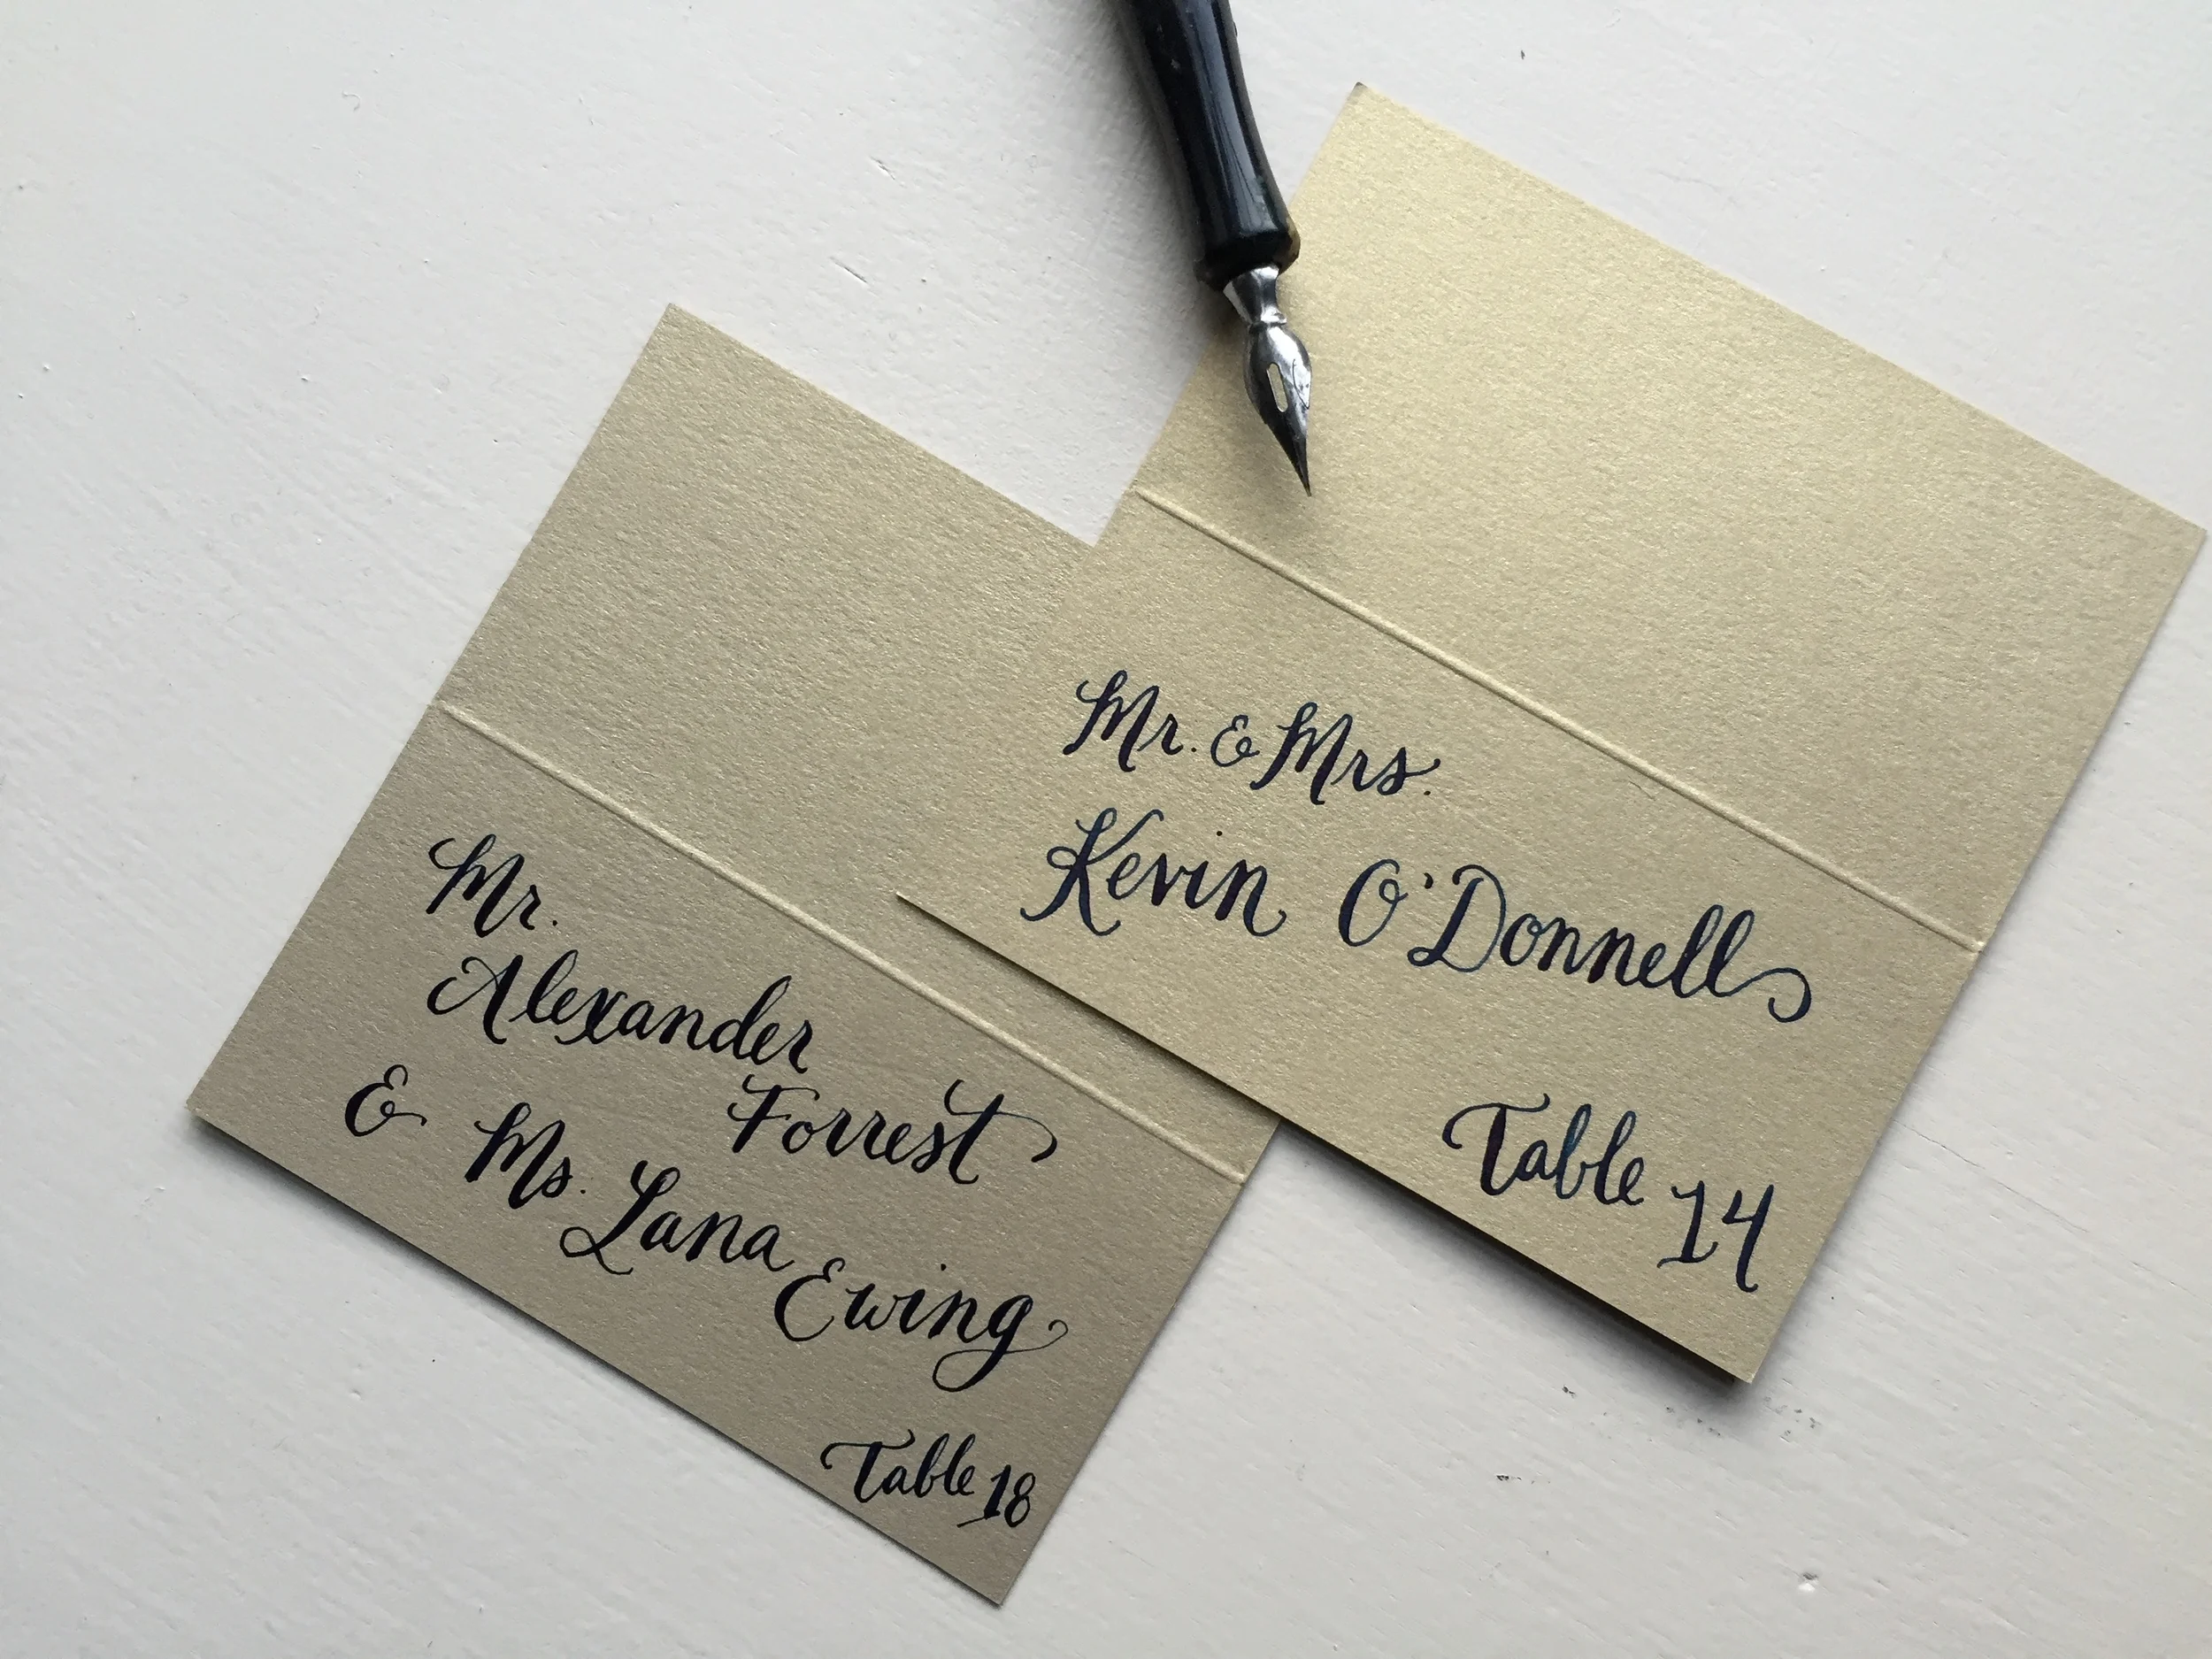 Mr.
Alexander
Forrest
& Ms. Lana
Ewing
Table 18
Mr. & Mrs.
Kevin O'Donnell
Table 14